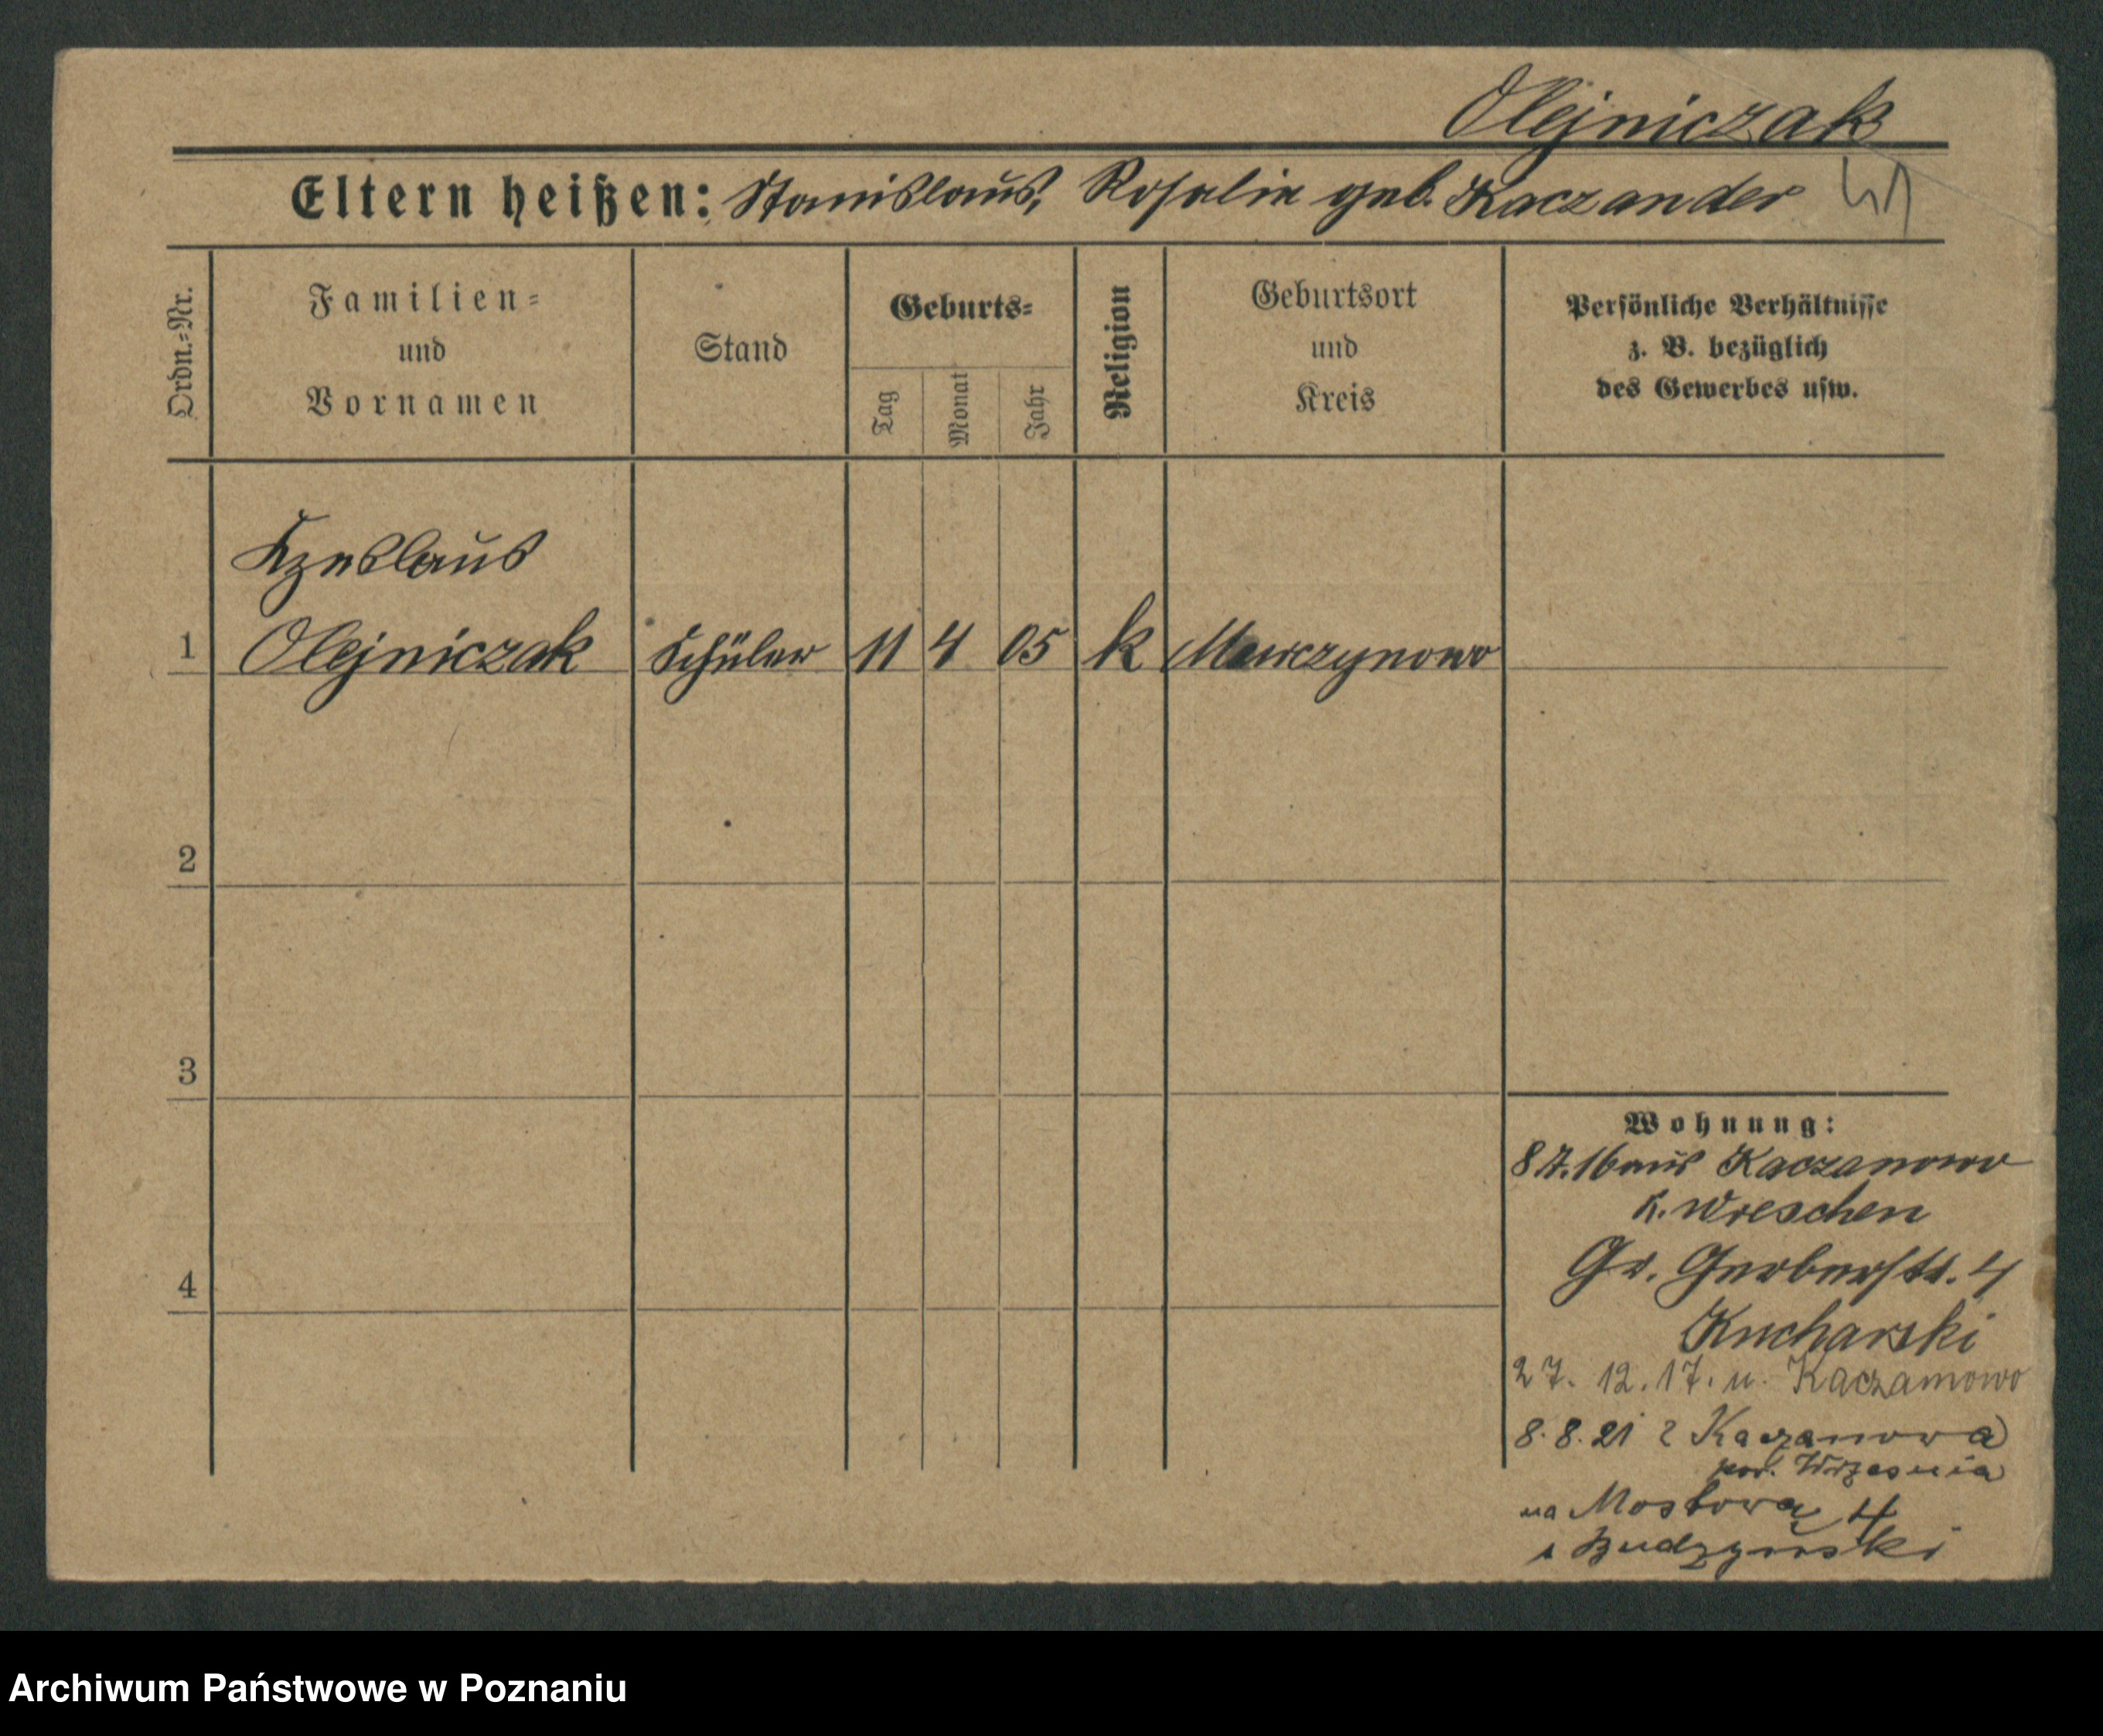 Olejniczak
Eltern heißen: Stanislaus, Rosalie geb. Kaczander
Ordn.-Nr.
Familien-
und
Vornamen
Stand
Geburts-
Tag
Monat
Jahr
Religion
Geburtsort
und
Kreis
Persönliche Verhältnisse
z. B. bezüglich
des Gewerbes usw.
Czeslaus
1 Olejniczak Schüler 11 4 05 k Marczynowo
2
3
4
Wohnung:
8.7.16 aus Kaczanowo
K. Wreschen
Gr. Gerberstr. 4
Kucharski
27. 12. 17. n. Kaczanowo
8. 8. 21 z Kaczanowa
pow. Września
na Mostową 4
Budzyński
Archiwum Państwowe w Poznaniu